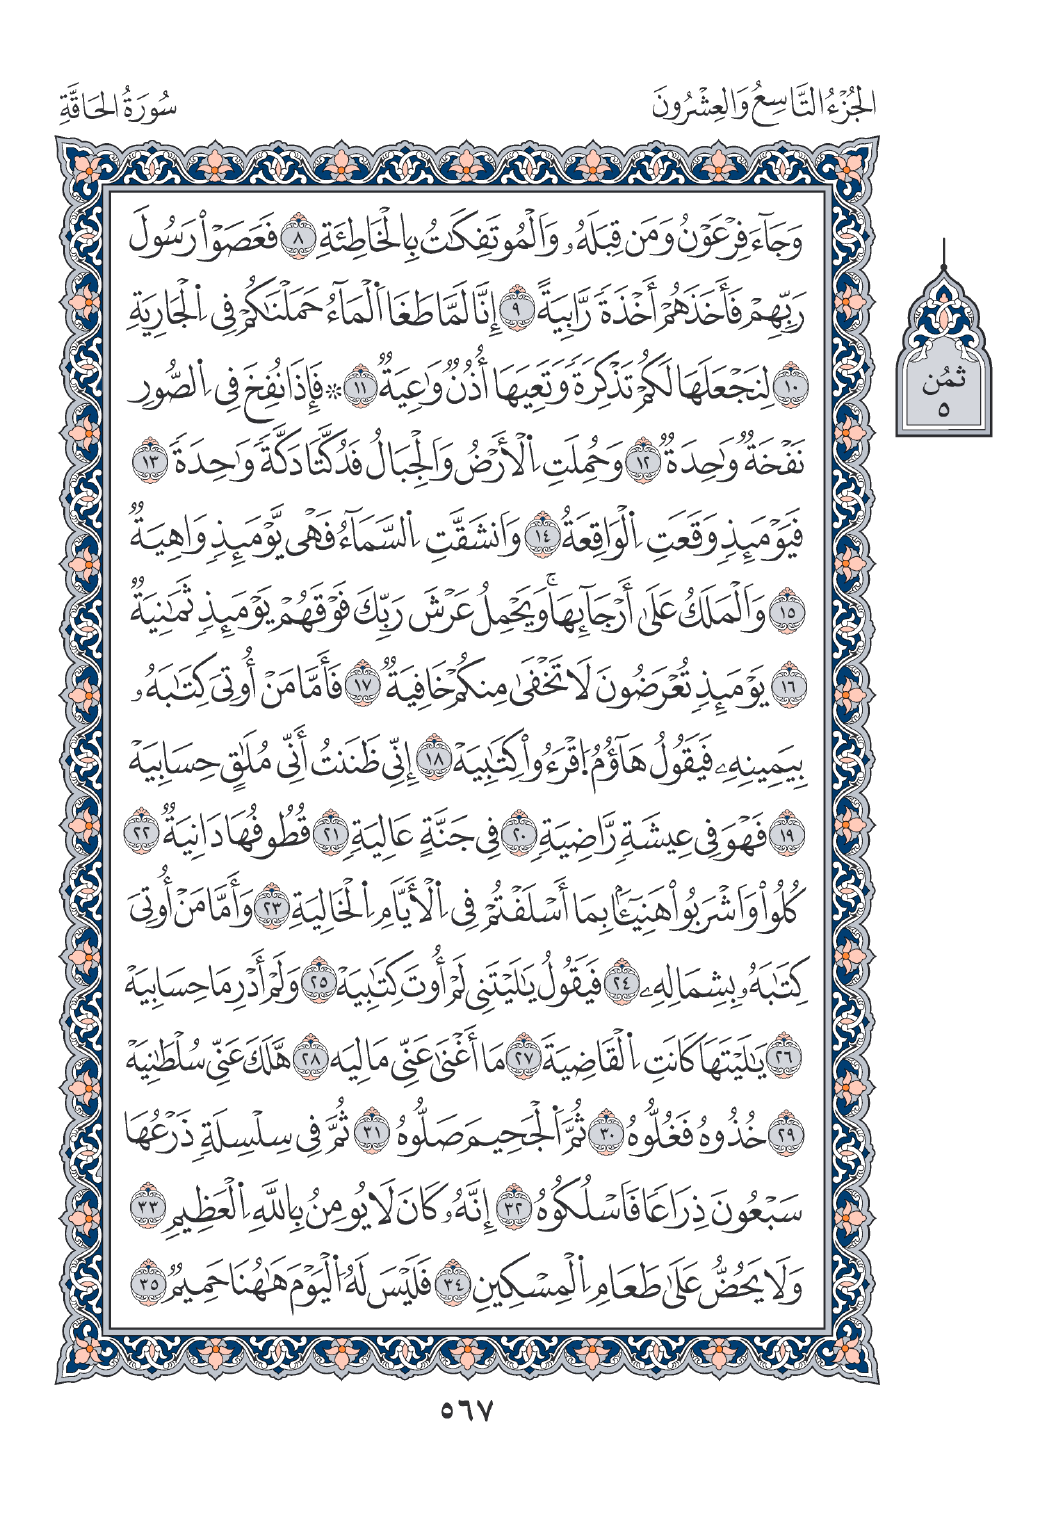 الجُزْءُ التَّاسِعُ وَالعِشْرُونَ
سُورَةُ الحَاقَّةِ
وَجَآءَ فِرْعَوْنُ وَمَن قِبَلَهُۥ وَالْمُوتَفِكَٰتُ بِالْخَاطِئَةِ ٨ فَعَصَوْاْ رَسُولَ
رَبِّهِمْ فَأَخَذَهُمْ أَخْذَةً رَّابِيَةً ٩ إِنَّا لَمَّا طَغَا اَلْمَآءُ حَمَلْنَٰكُمْ فِي اِلْجَارِيَةِ
١٠ لِنَجْعَلَهَا لَكُمْ تَذْكِرَةً وَتَعِيَهَا أُذُنٌ وَٰعِيَةٌ ١١ ۞ فَإِذَا نُفِخَ فِي اِلصُّورِ
نَفْخَةٌ وَٰحِدَةٌ ١٢ وَحُمِلَتِ اِلْأَرْضُ وَالْجِبَالُ فَدُكَّتَا دَكَّةً وَٰحِدَةً ١٣
فَيَوْمَئِذٍ وَقَعَتِ اِلْوَاقِعَةُ ١٤ وَانشَقَّتِ اِلسَّمَآءُ فَهْيَ يَوْمَئِذٍ وَاهِيَةٌ
١٥ وَالْمَلَكُ عَلَىٰ أَرْجَآئِهَاۚ وَيَحْمِلُ عَرْشَ رَبِّكَ فَوْقَهُمْ يَوْمَئِذٍ ثَمَٰنِيَةٌ
١٦ يَوْمَئِذٍ تُعْرَضُونَ لَا تَخْفَىٰ مِنكُمْ خَافِيَةٌ ١٧ فَأَمَّا مَنْ أُوتِيَ كِتَٰبَهُۥ
بِيَمِينِهِۦ فَيَقُولُ هَآؤُمُ اُقْرَءُواْ كِتَٰبِيَهْ ١٨ إِنِّي ظَنَنتُ أَنِّي مُلَٰقٍ حِسَابِيَهْ
١٩ فَهْوَ فِي عِيشَةٍ رَّاضِيَةٍ ٢٠ فِي جَنَّةٍ عَالِيَةٍ ٢١ قُطُوفُهَا دَانِيَةٌ ٢٢
كُلُواْ وَاشْرَبُواْ هَنِيٓـَٔۢا بِمَا أَسْلَفْتُمْ فِي اِلْأَيَّامِ اِلْخَالِيَةِ ٢٣ وَأَمَّا مَنْ أُوتِيَ
كِتَٰبَهُۥ بِشِمَالِهِۦ ٢٤ فَيَقُولُ يَٰلَيْتَنِي لَمْ أُوتَ كِتَٰبِيَهْ ٢٥ وَلَمْ أَدْرِ مَا حِسَابِيَهْ
٢٦ يَٰلَيْتَهَا كَانَتِ اِلْقَاضِيَةَ ٢٧ مَا أَغْنَىٰ عَنِّي مَالِيَه ٢٨ هَّلَكَ عَنِّي سُلْطَٰنِيَهْ
٢٩ خُذُوهُ فَغُلُّوهُ ٣٠ ثُمَّ اَلْجَحِيمَ صَلُّوهُ ٣١ ثُمَّ فِي سِلْسِلَةٍ ذَرْعُهَا
سَبْعُونَ ذِرَاعًا فَاسْلُكُوهُ ٣٢ إِنَّهُۥ كَانَ لَا يُومِنُ بِاللَّهِ اِلْعَظِيمِ ٣٣
وَلَا يَحُضُّ عَلَىٰ طَعَامِ اِلْمِسْكِينِ ٣٤ فَلَيْسَ لَهُ اُلْيَوْمَ هَٰهُنَا حَمِيمٌ ٣٥
ثُمُن
٥
٥٦٧